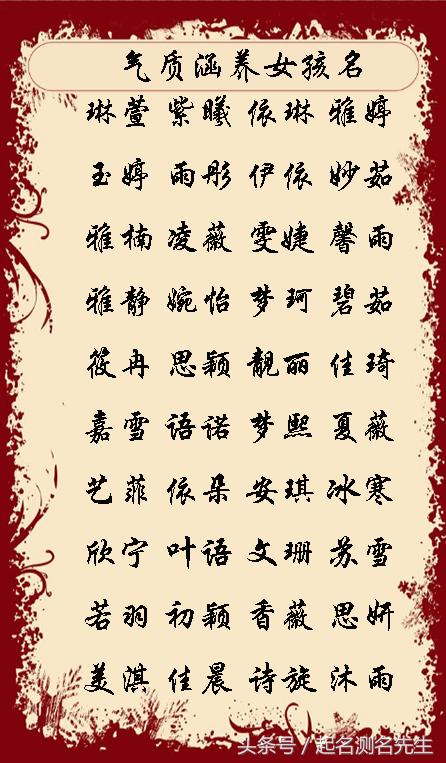 气质涵养女孩名
琳萱 紫曦 依琳 雅婷
玉婷 雨彤 伊依 妙茹
雅楠 凌薇 雯婕 馨雨
雅静 婉怡 梦珂 碧茹
筱冉 思颖 靓丽 佳琦
嘉雪 语诺 梦熙 夏薇
艺菲 依朵 安琪 冰寒
欣宁 叶语 文珊 苏雪
若羽 初颖 香薇 思妍
美淇 佳晨 诗旋 沐雨
头条号/起名测名先生